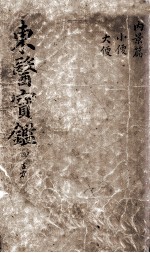 東醫寶鑑
內景篇
小便
大便